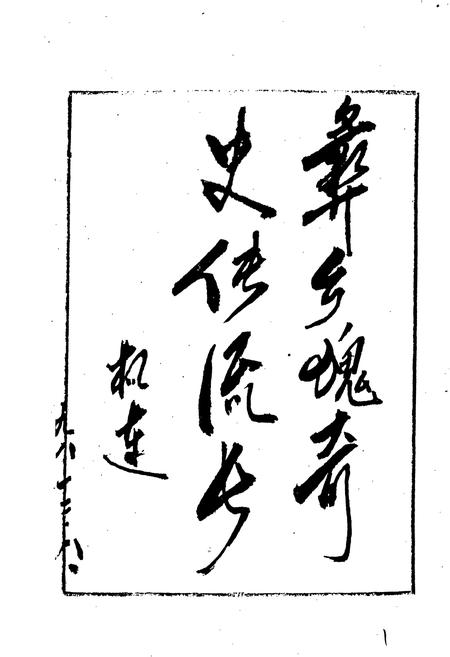 彝乡瑰奇
史传流长
九八·十二·八
1